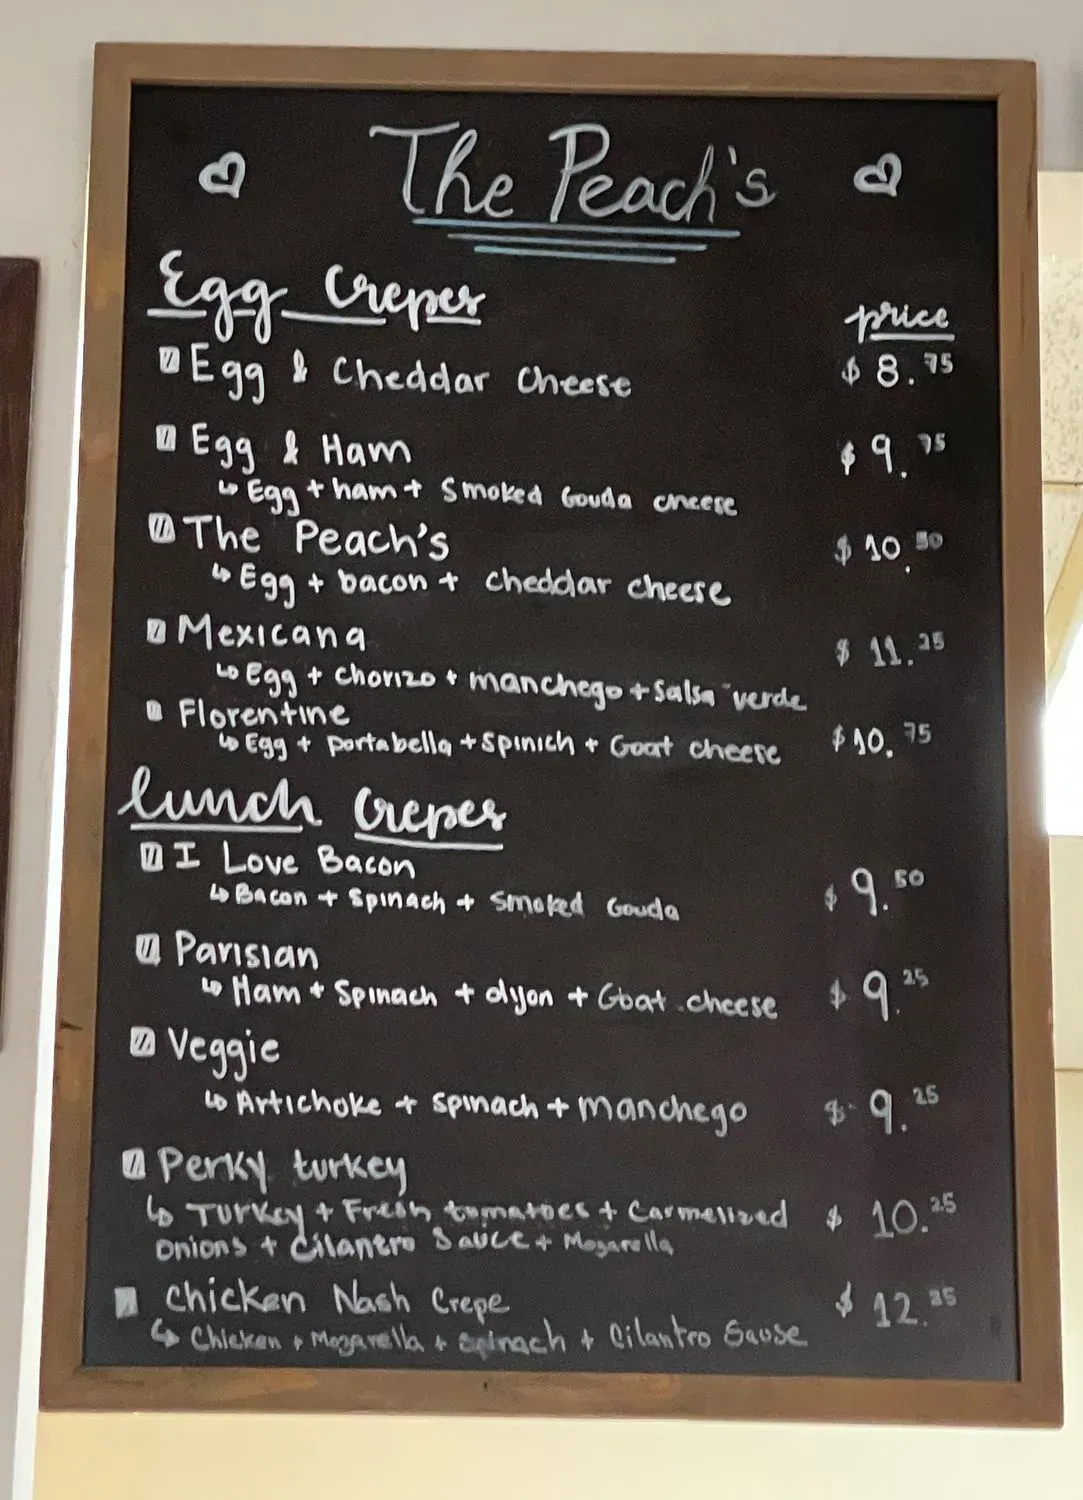 The Peach's
Egg Crepes
price
Egg & Cheddar Cheese $ 8.75
Egg & Ham $ 9.75
↳ Egg + ham + Smoked Gouda cheese
The Peach's $ 10.50
↳ Egg + bacon + cheddar cheese
Mexicana $ 11.25
↳ Egg + chorizo + manchego + Salsa verde
Florentine $ 10.75
↳ Egg + portabella + Spinich + Goat cheese
lunch crepes
I Love Bacon $ 9.50
↳ Bacon + Spinach + Smoked Gouda
Parisian $ 9.25
↳ Ham + Spinach + dijon + Goat cheese
Veggie $ 9.25
↳ Artichoke + spinach + manchego
Perky turkey
↳ Turkey + Fresh tomatoes + Carmelized $ 10.25
Onions + Cilantro Sauce + Mozarella
Chicken Nash Crepe $ 12.25
↳ Chicken + Mozarella + Spinach + Cilantro Sause